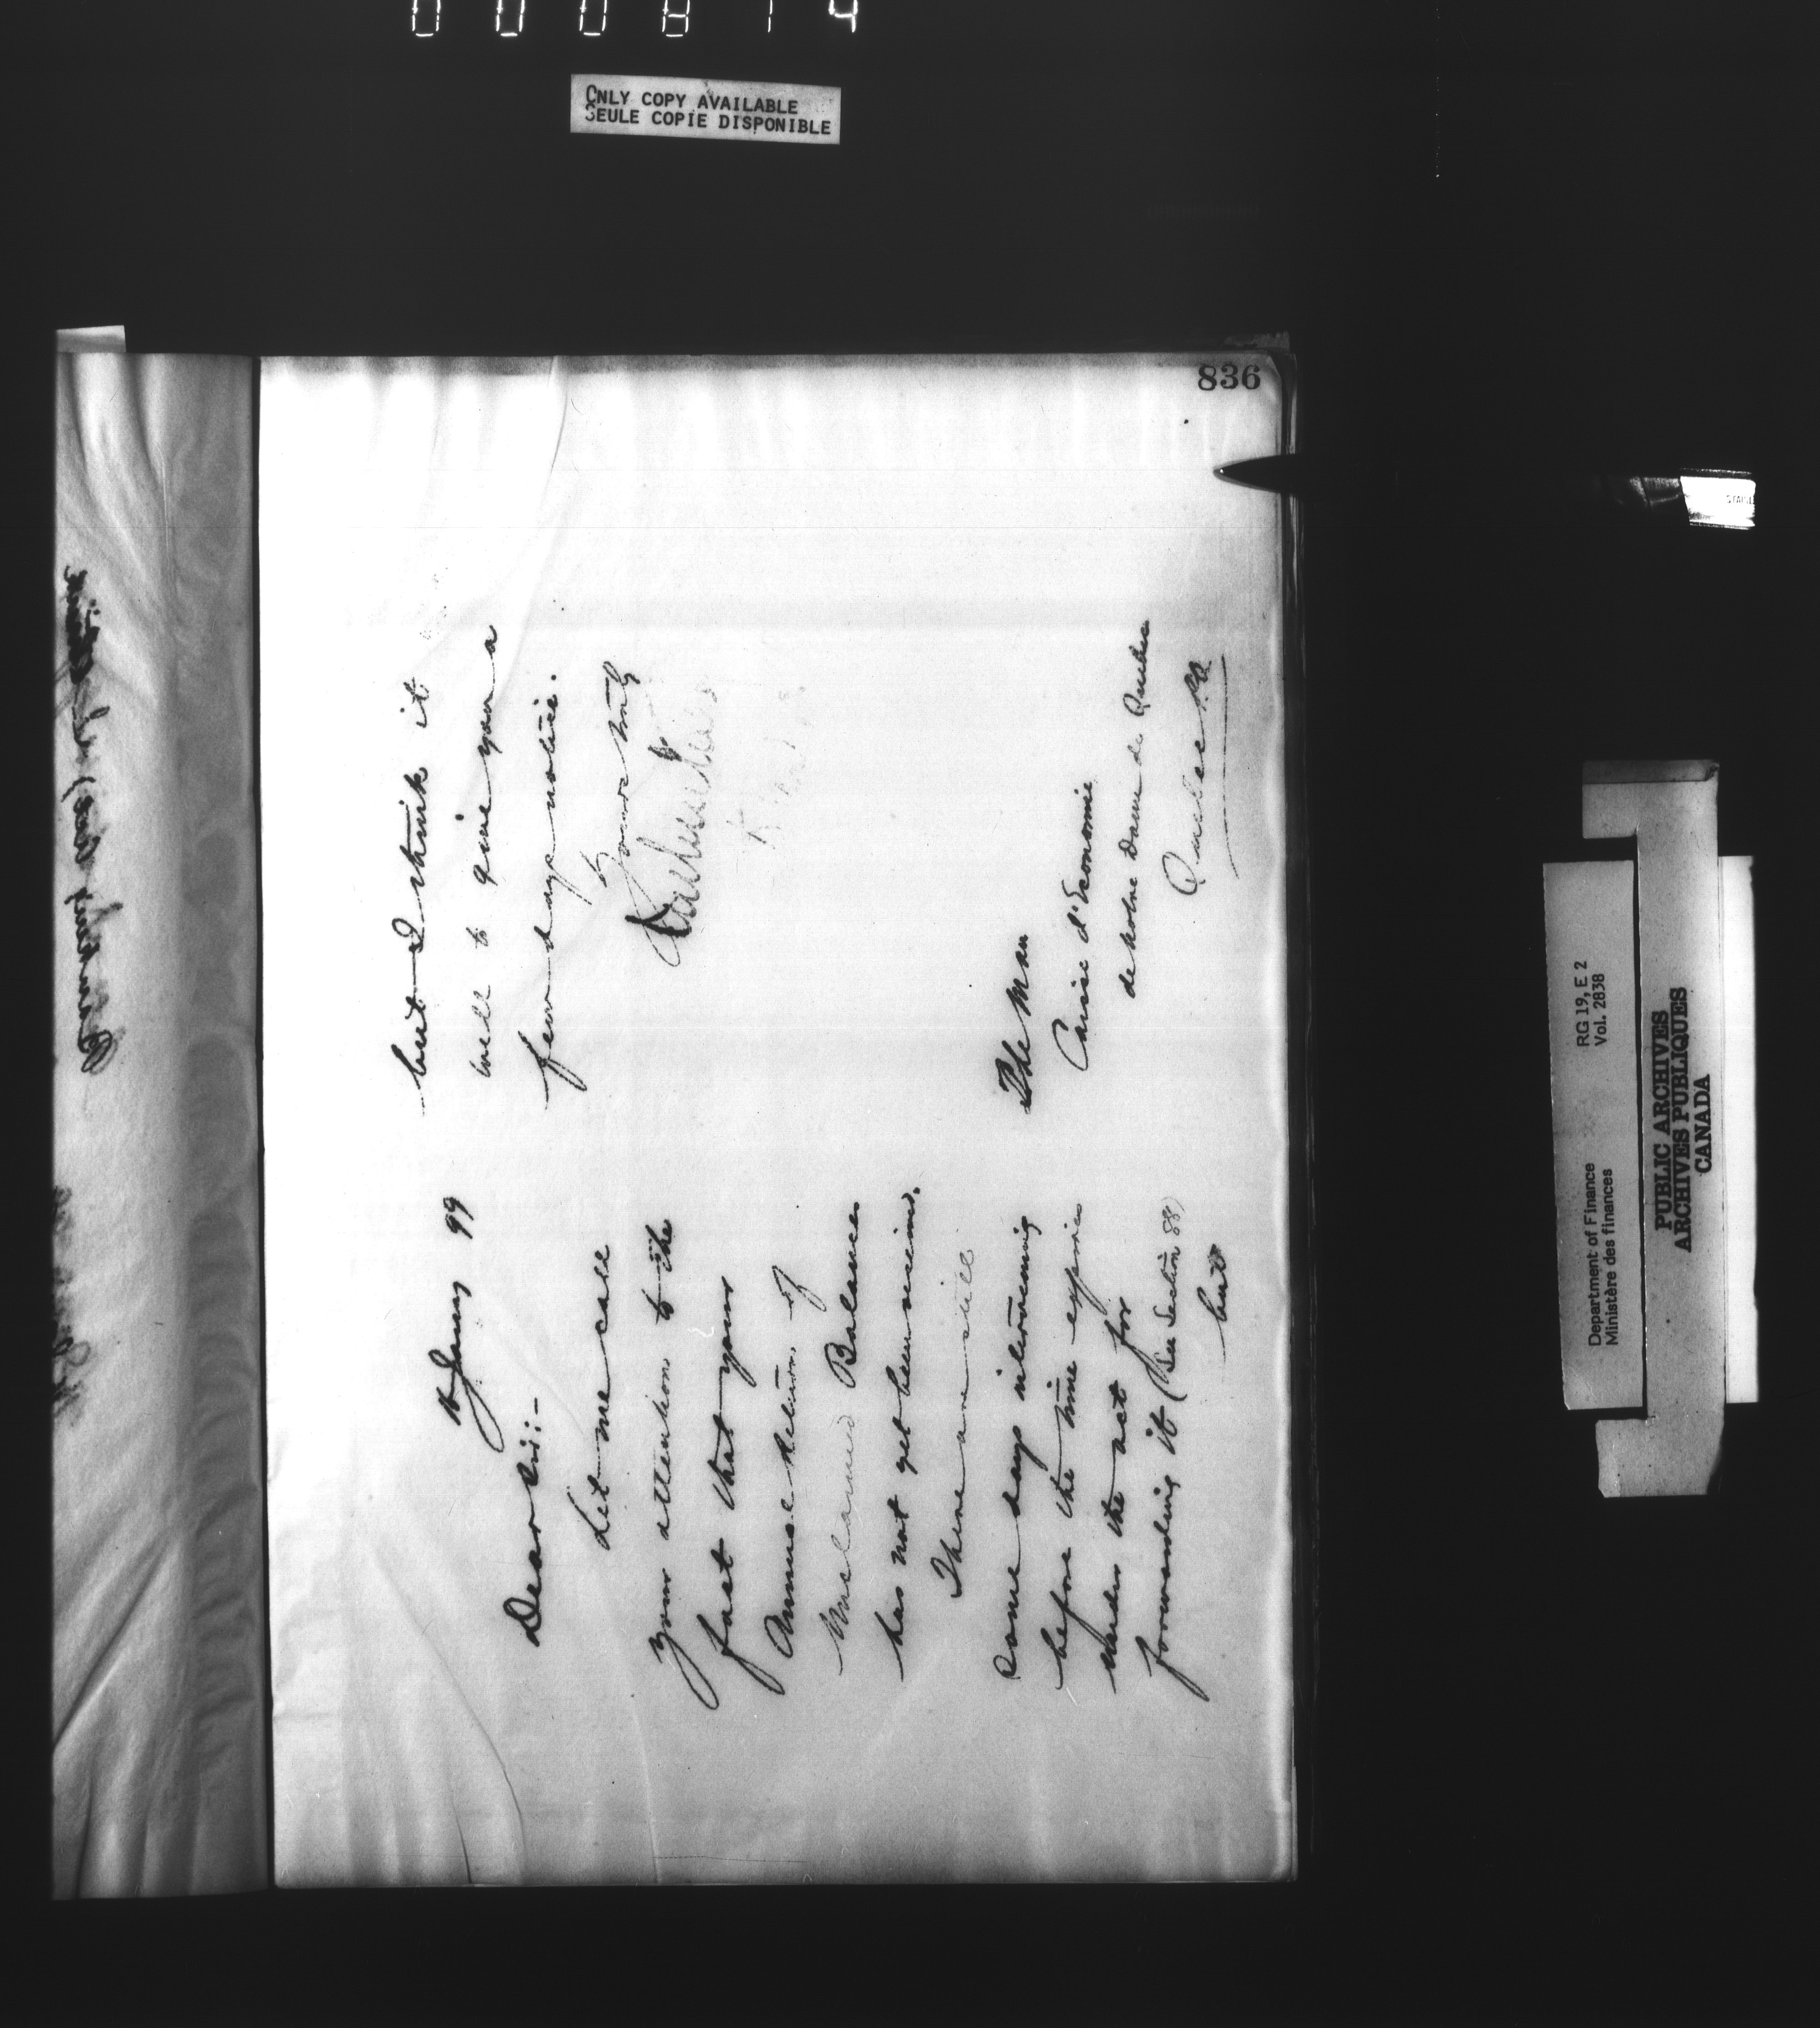 000814
ONLY COPY AVAILABLE
SEULE COPIE DISPONIBLE
836
Jany 99
Dear Sir:-
Let me call
your attention to the
fact that your
Annual Return of
Unclaimed Balances
has not yet been received.
There are still
some days intervening
before the time expires
under the act for
forwarding it (See Section 88)
but
but I think it
well to give you a
few days notice.
Yours truly
The Man
Caisse d'Economie
de Notre Dame de Quebec
Quebec P.Q.
Department of Finance
Ministère des finances
RG 19, E 2
Vol. 2838
PUBLIC ARCHIVES
ARCHIVES PUBLIQUES
CANADA